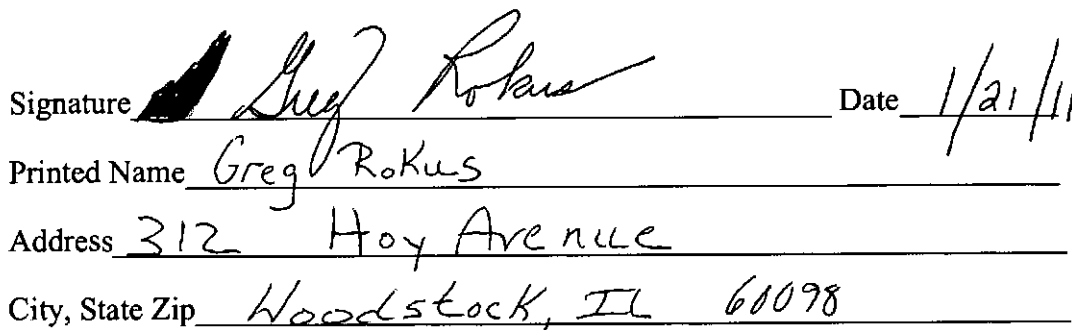 Signature Greg Rokus Date 1/21/11
Printed Name Greg Rokus
Address 312 Hoy Avenue
City, State Zip Woodstock, IL 60098